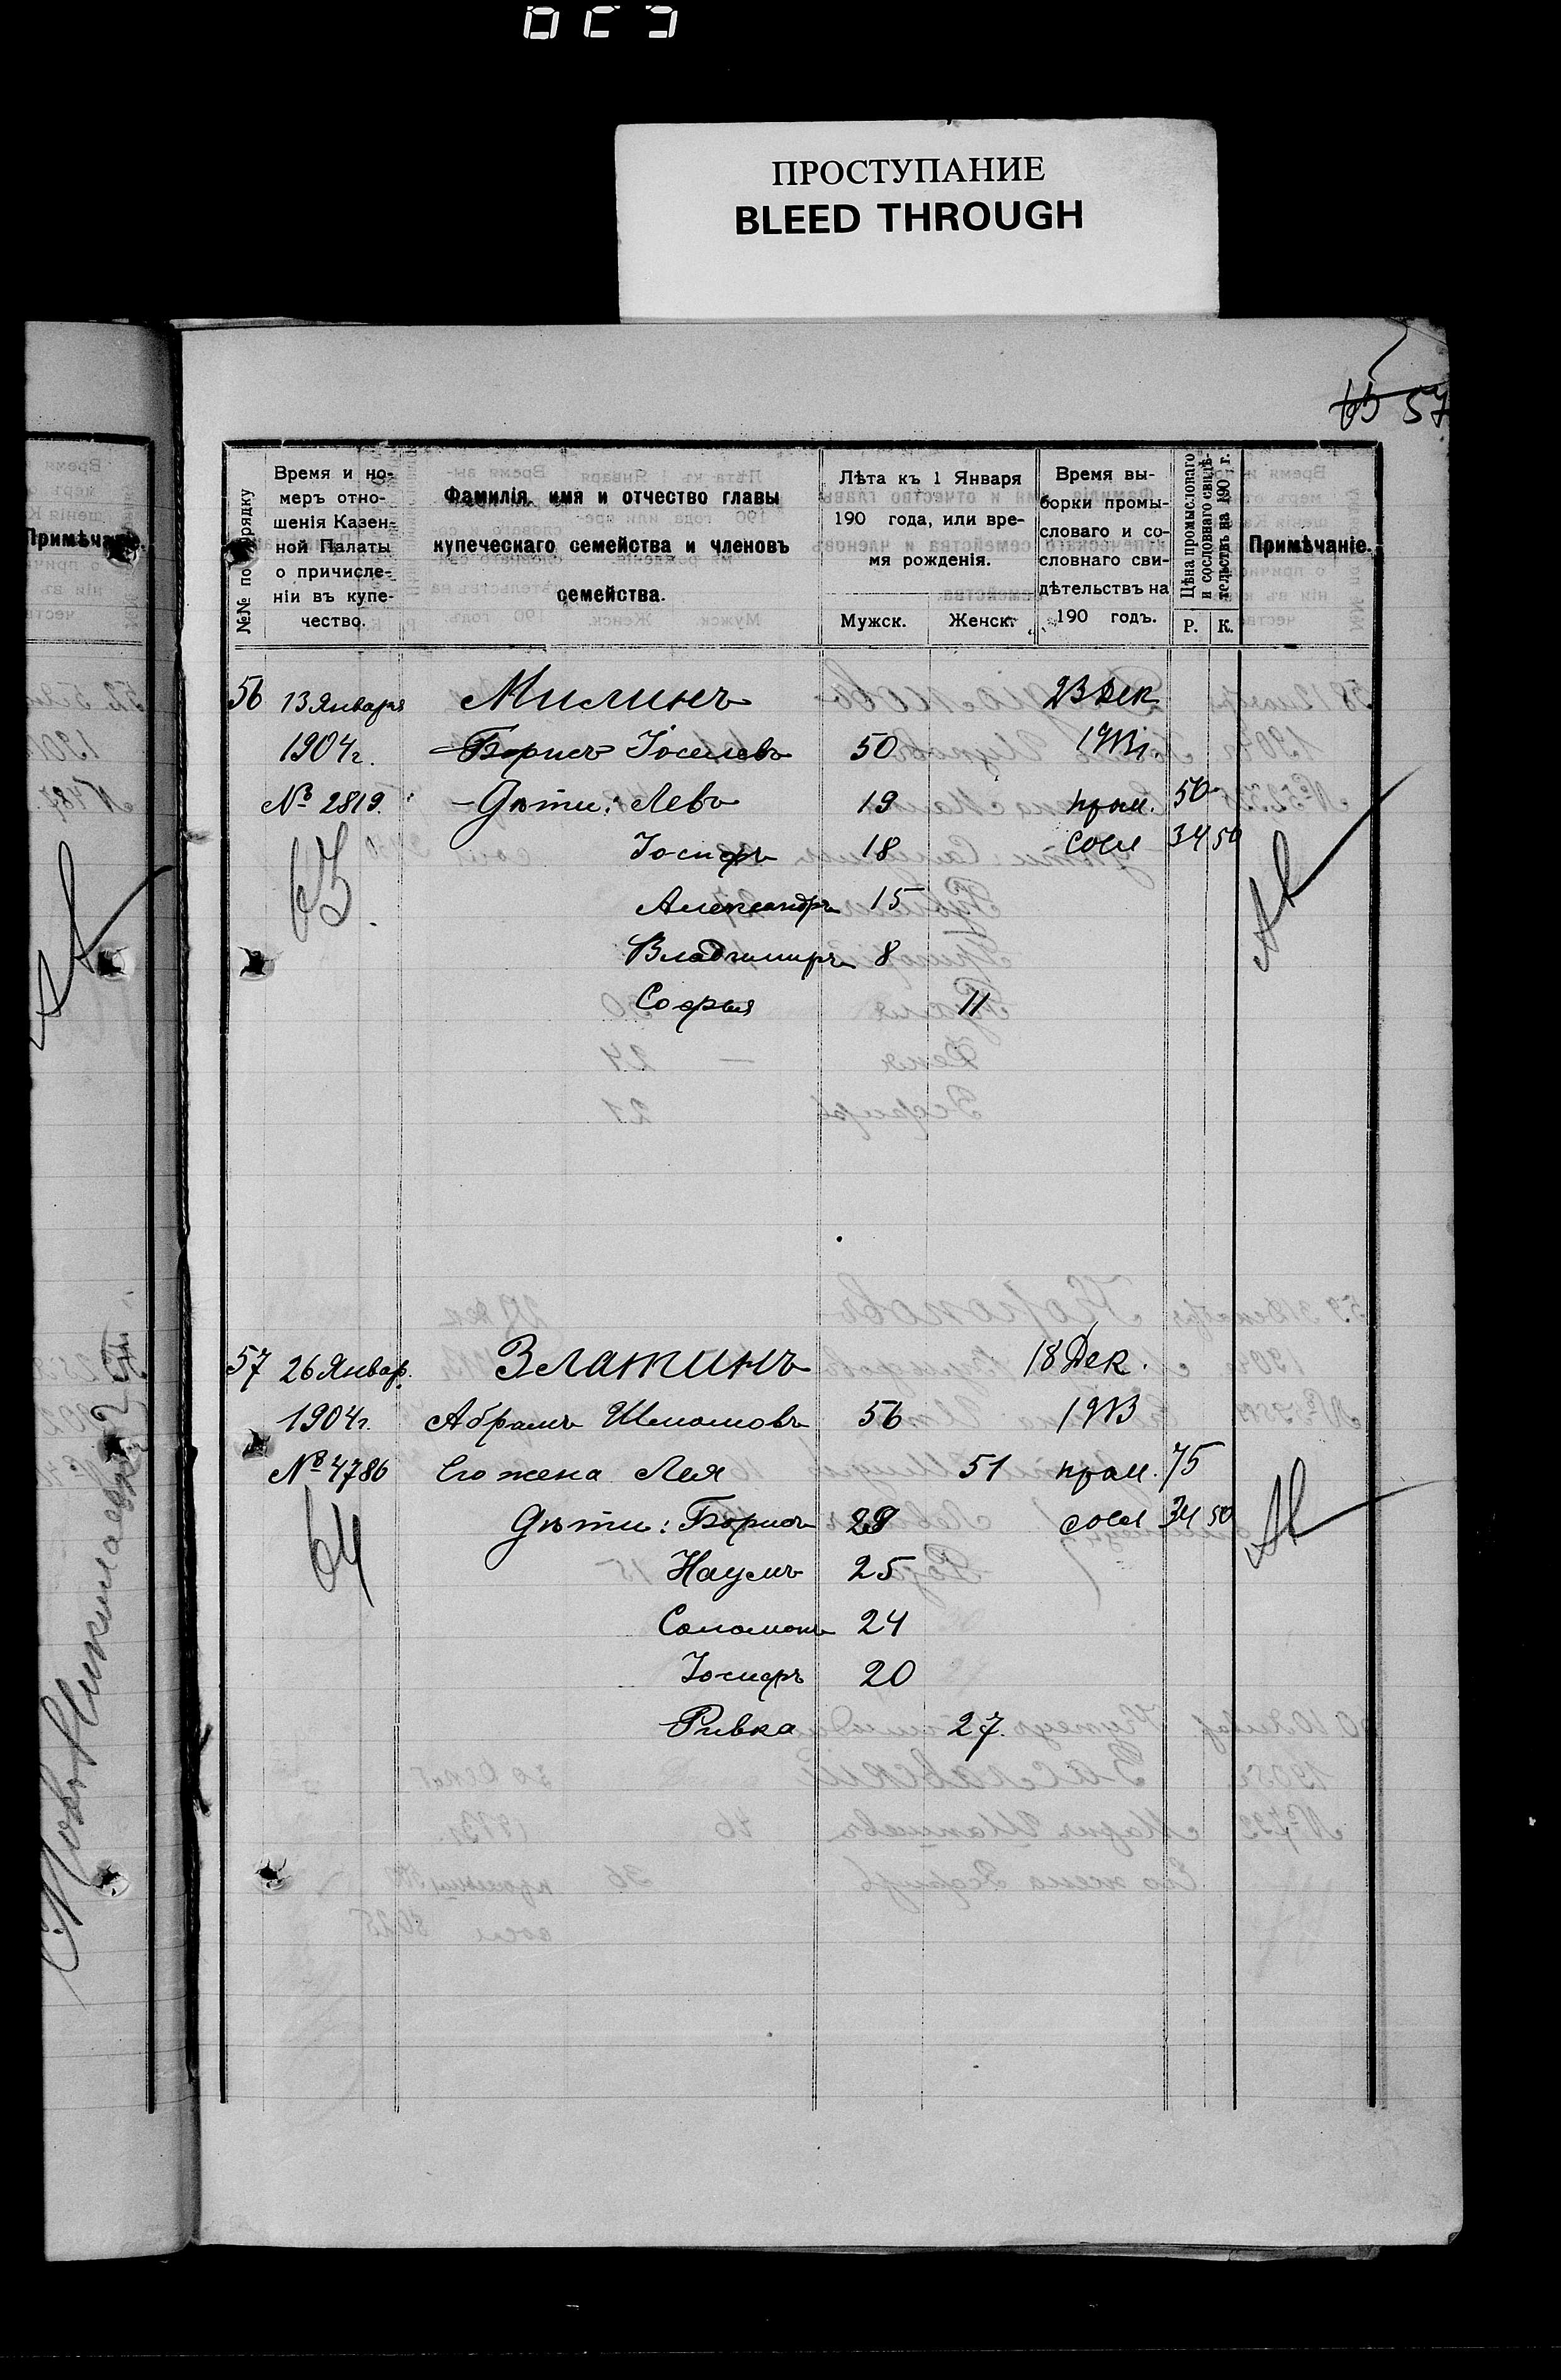 ПРОСТУПАНИЕ
BLEED THROUGH
65 57
Примѣчаніе.
№№ по порядку
Время и но-
меръ отно-
шенія Казен-
ной Палаты
о причисле-
ніи въ купе-
чество.
Фамилія, имя и отчество главы
купеческаго семейства и членовъ
семейства.
Лѣта къ 1 Января
190 года, или вре-
мя рожденія.
Мужск. Женск.
Время вы-
борки промы-
словаго и со-
словнаго сви-
дѣтельствъ на
190 годъ.
Цѣна промысловаго
и сословнаго свидѣ-
тельствъ на 190 г.
Р. К.
Примѣчаніе.
56 13 Января Милинъ 23 Дек
1904 г. Борисъ Іоселевъ 50
№ 2819. Дѣти: Левъ 19 пром. 50
65. Іосифъ 18 сосл 34 50
Александръ 15
Владимиръ 8
Софья 11
57 26 Январ. Златинъ 18 Дек.
1904 г. Абрамъ Шломовъ 56
№ 4786 Его жена Лея 51 пром. 75
64 Дѣти: Борисъ 28 сосл 34 50
Наумъ 25
Соломонъ 24
Іосифъ 20
Ривка 27.